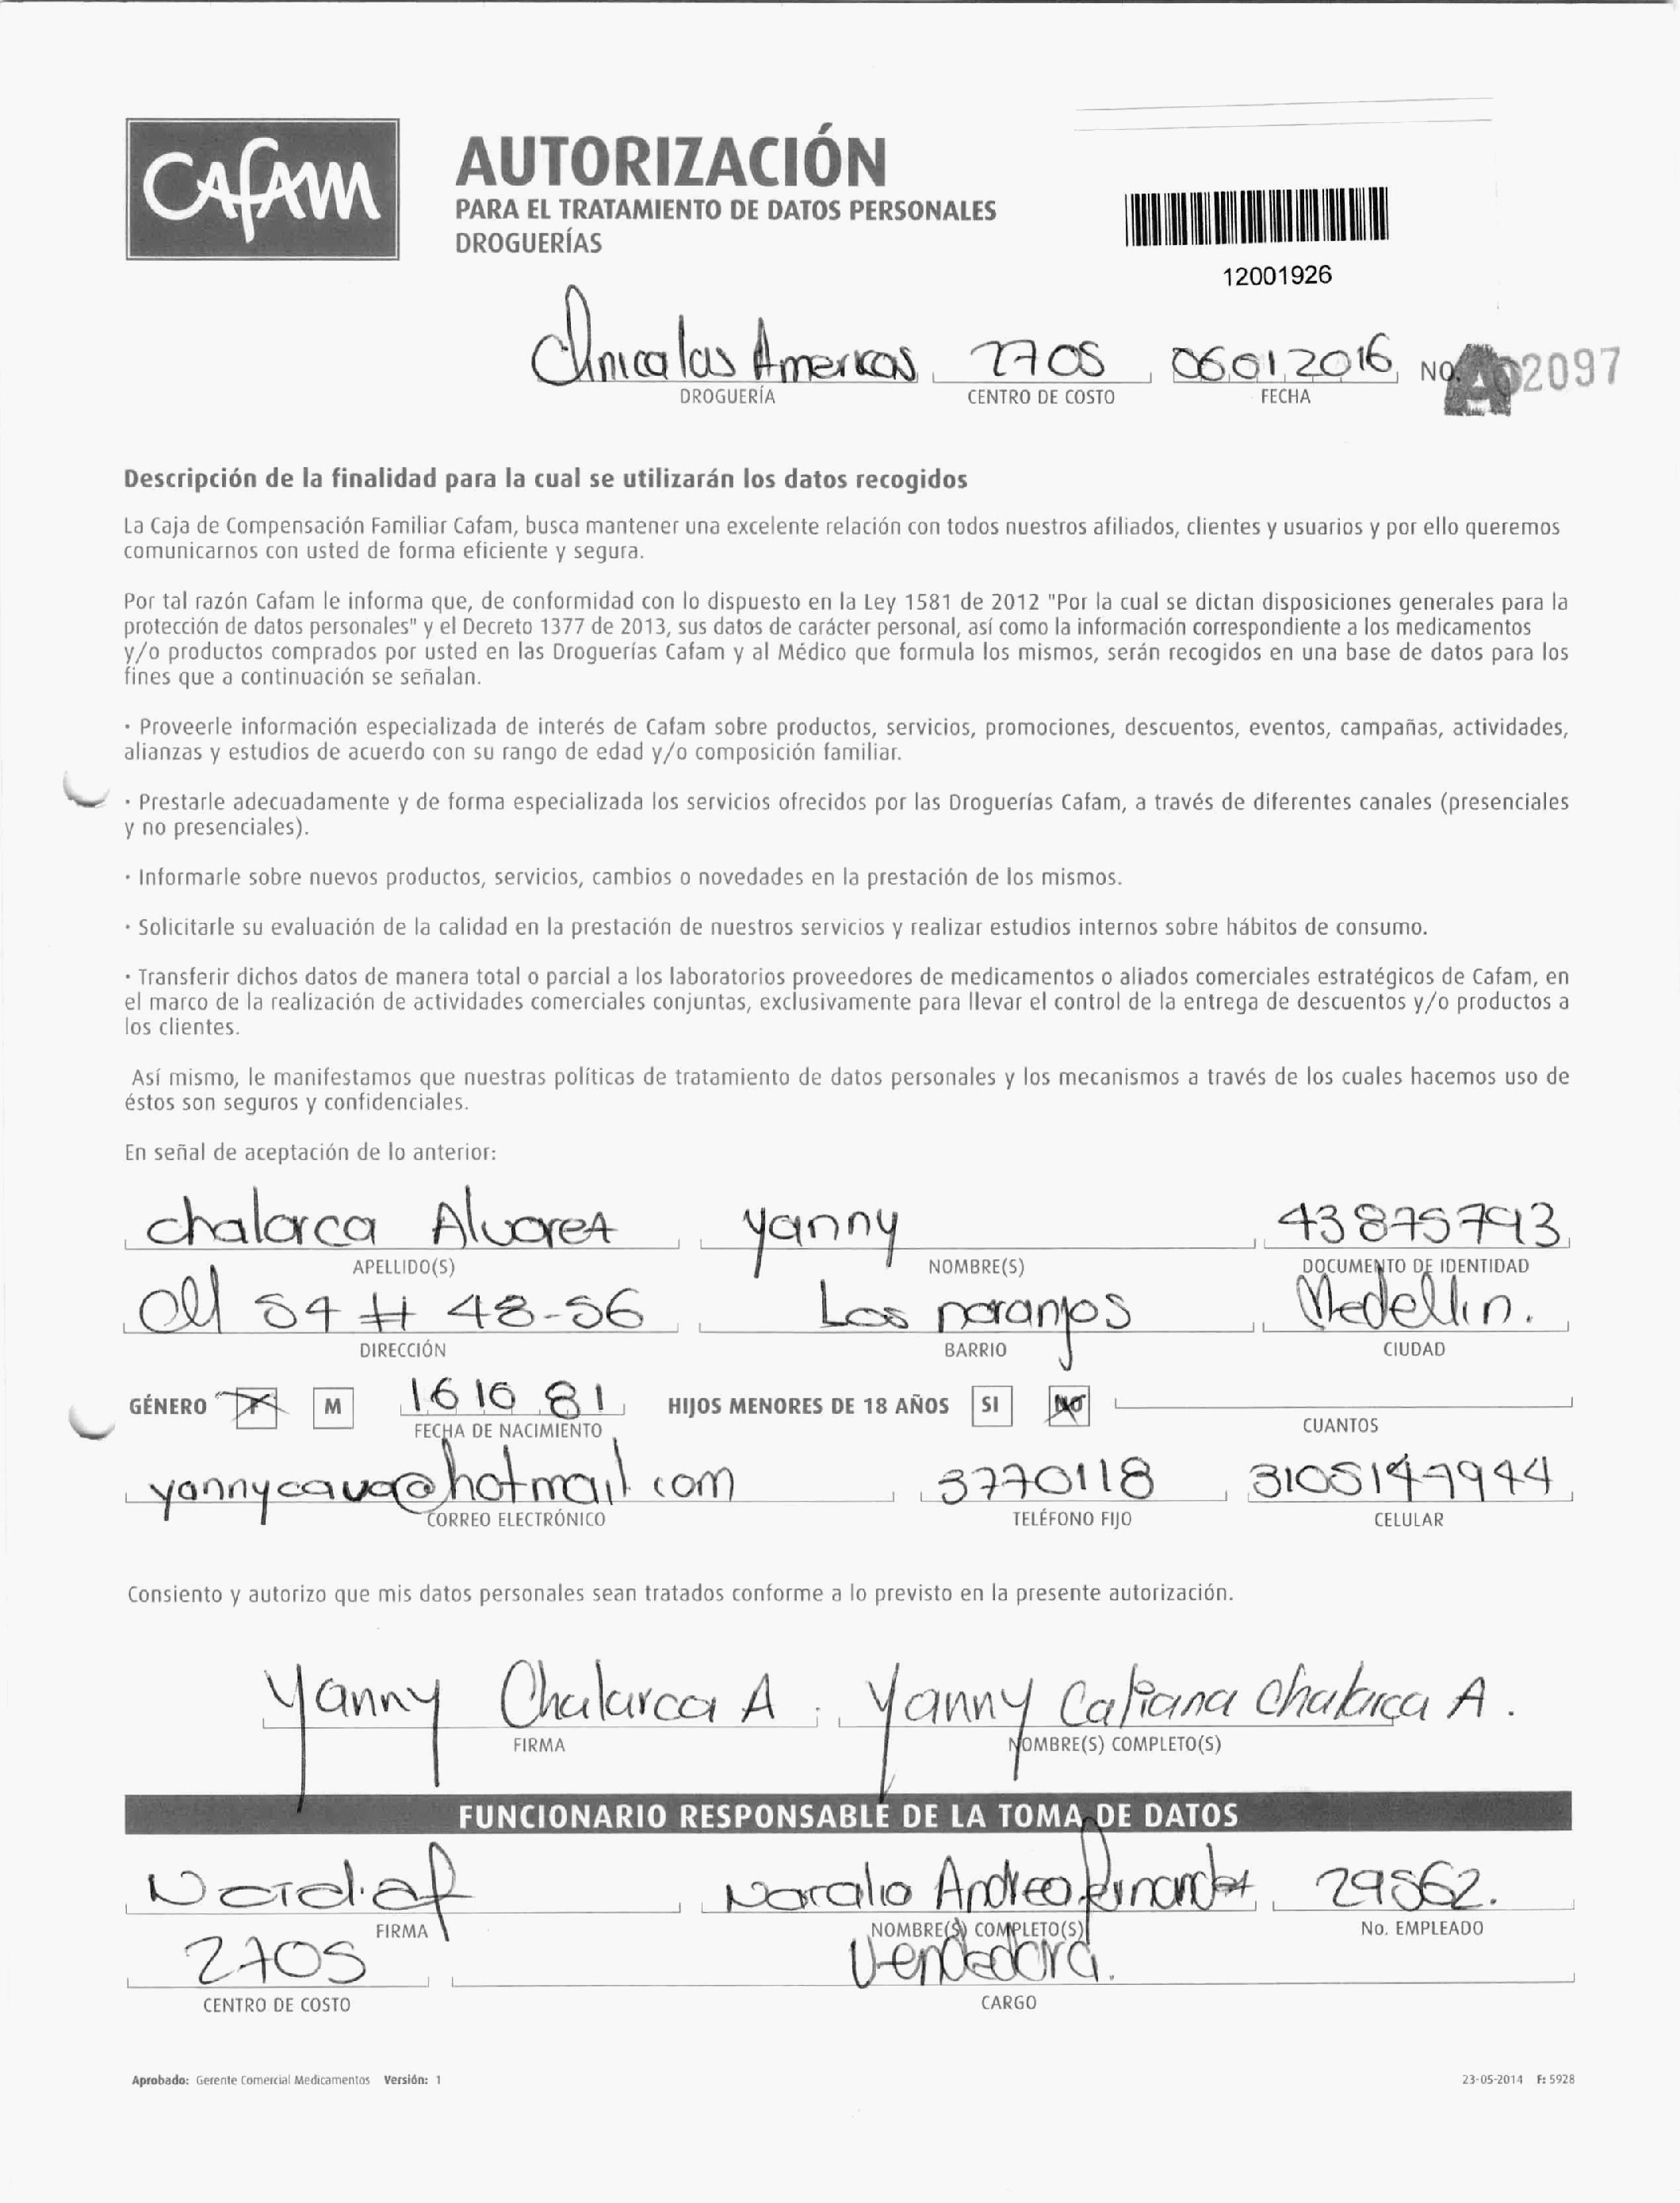 Cafam
AUTORIZACIÓN
PARA EL TRATAMIENTO DE DATOS PERSONALES
DROGUERÍAS
12001926
Clinica las Americas 2705 06 01 2016 No. A 02097
DROGUERÍA CENTRO DE COSTO FECHA
Descripción de la finalidad para la cual se utilizarán los datos recogidos
La Caja de Compensación Familiar Cafam, busca mantener una excelente relación con todos nuestros afiliados, clientes y usuarios y por ello queremos
comunicarnos con usted de forma eficiente y segura.
Por tal razón Cafam le informa que, de conformidad con lo dispuesto en la Ley 1581 de 2012 "Por la cual se dictan disposiciones generales para la
protección de datos personales" y el Decreto 1377 de 2013, sus datos de carácter personal, así como la información correspondiente a los medicamentos
y/o productos comprados por usted en las Droguerías Cafam y al Médico que formula los mismos, serán recogidos en una base de datos para los
fines que a continuación se señalan.
· Proveerle información especializada de interés de Cafam sobre productos, servicios, promociones, descuentos, eventos, campañas, actividades,
alianzas y estudios de acuerdo con su rango de edad y/o composición familiar.
· Prestarle adecuadamente y de forma especializada los servicios ofrecidos por las Droguerías Cafam, a través de diferentes canales (presenciales
y no presenciales).
· Informarle sobre nuevos productos, servicios, cambios o novedades en la prestación de los mismos.
· Solicitarle su evaluación de la calidad en la prestación de nuestros servicios y realizar estudios internos sobre hábitos de consumo.
· Transferir dichos datos de manera total o parcial a los laboratorios proveedores de medicamentos o aliados comerciales estratégicos de Cafam, en
el marco de la realización de actividades comerciales conjuntas, exclusivamente para llevar el control de la entrega de descuentos y/o productos a
los clientes.
Así mismo, le manifestamos que nuestras políticas de tratamiento de datos personales y los mecanismos a través de los cuales hacemos uso de
éstos son seguros y confidenciales.
En señal de aceptación de lo anterior:
chalarca Alvarez yanny 43875793
APELLIDO(S) NOMBRE(S) DOCUMENTO DE IDENTIDAD
Cll 54 # 48-56 Los naranjos Medellin.
DIRECCIÓN BARRIO CIUDAD
GÉNERO F M 16 10 81 HIJOS MENORES DE 18 AÑOS SI NO
FECHA DE NACIMIENTO CUANTOS
yannycava@hotmail.com 3770118 3105147944
CORREO ELECTRÓNICO TELÉFONO FIJO CELULAR
Consiento y autorizo que mis datos personales sean tratados conforme a lo previsto en la presente autorización.
Yanny Chalarca A. Yanny Catiana Chalarca A.
FIRMA NOMBRE(S) COMPLETO(S)
FUNCIONARIO RESPONSABLE DE LA TOMA DE DATOS
Natalia Andrea Fernandez 29562.
FIRMA NOMBRE(S) COMPLETO(S) No. EMPLEADO
2705 Vendedora.
CENTRO DE COSTO CARGO
Aprobado: Gerente Comercial Medicamentos Versión: 1 23-05-2014 F: 5928